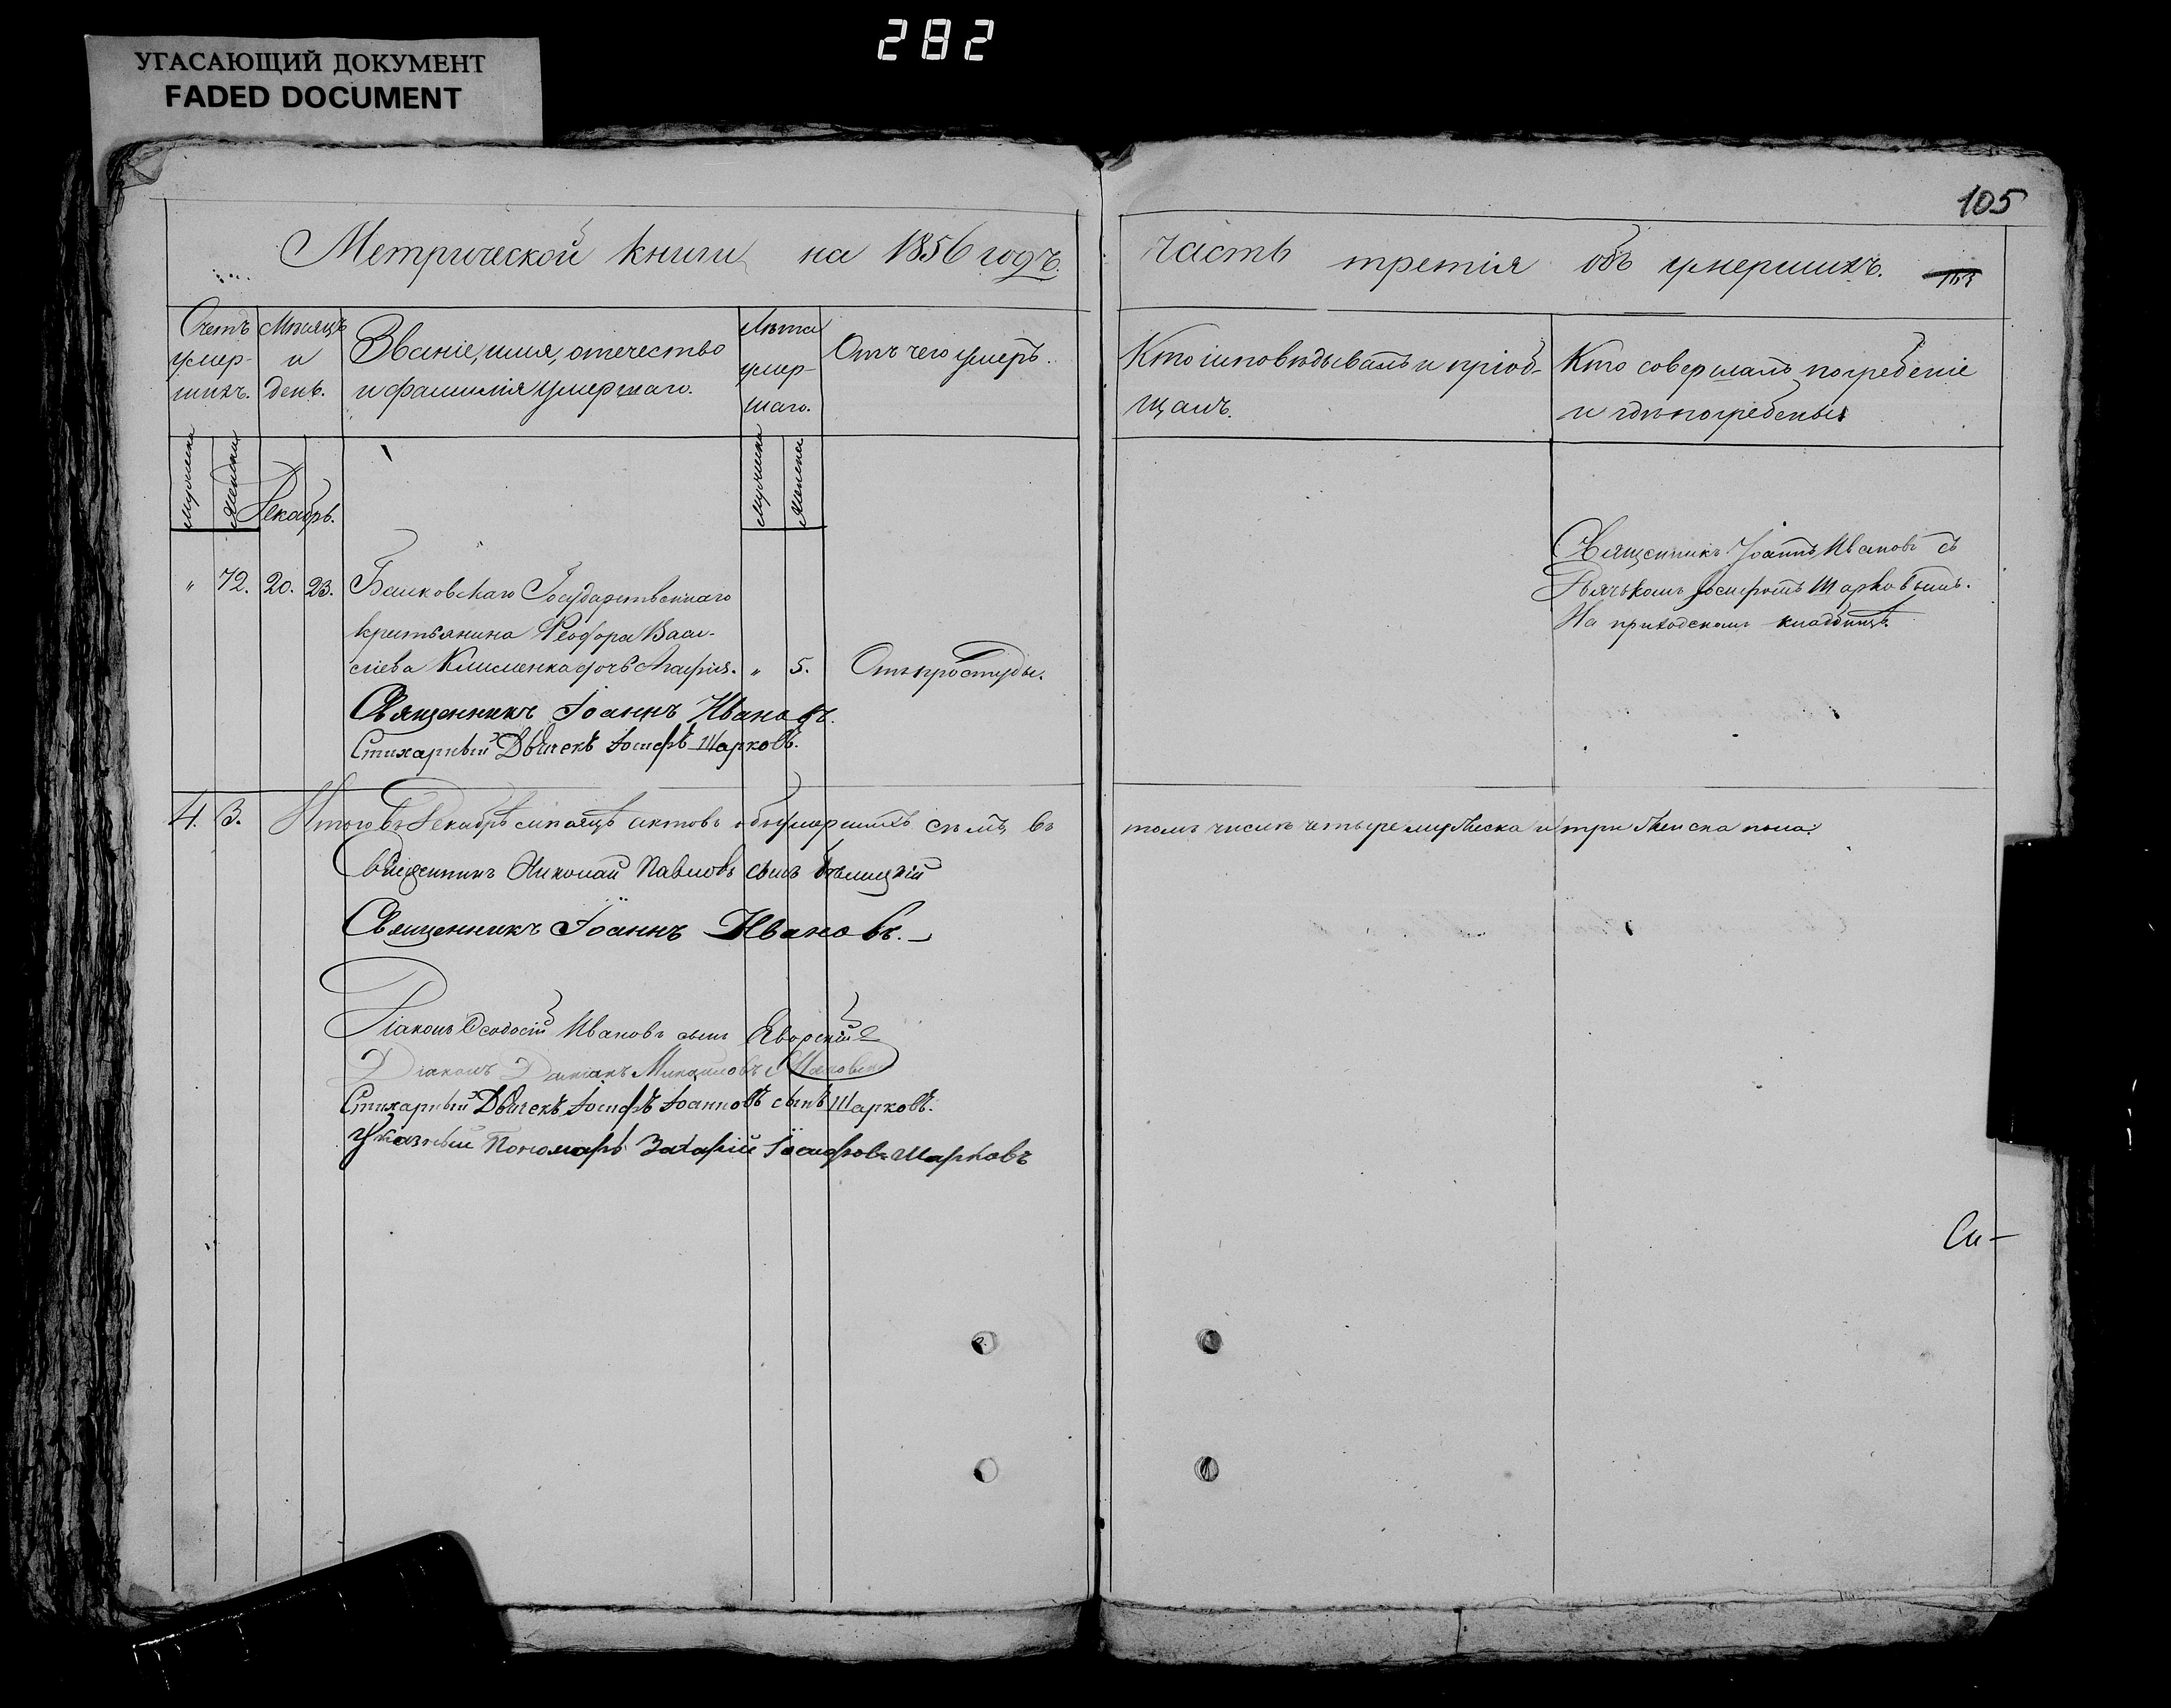 282
УГАСАЮЩИЙ ДОКУМЕНТ
FADED DOCUMENT
105
Метрической книги на 1856 годъ.
часть третія объ умершихъ.
Счетъ умер-шихъ.
Мѣсяцъ и день.
Званіе, имя, отечество и фамилія умершаго.
Лѣта умер-шаго.
Отъ чего умеръ.
Кто исповѣдывалъ и пріоб-щалъ.
Кто совершалъ погребеніе и гдѣ погребены
Мужеска
Женска
Декабрь.
Мужеска
Женска
" 72. 20. 23. Баиковскаго Государственнаго
крестьянина Ѳеодора Васи-
сіева Клименка дочь Агафія. " 5. Отъ простуды.
Священникъ Іоаннъ Ивановъ съ
Дьячкомъ Іосифомъ Шарковымъ.
На приходскомъ кладбищѣ.
Священникъ Іоаннъ Ивановъ.
Стихарный Дьячекъ Іосифъ Шарковъ.
4. 3. Итого въ Декабрѣ мѣсяцѣ актовъ объ умершихъ семь, въ
томъ числѣ четыре мужеска и три женска пола.
Священникъ Николай Павловъ сынъ Бѣлицкій
Священникъ Іоаннъ Ивановъ.
Діаконъ Ѳеодосій Ивановъ сынъ Яворскій
Діаконъ Даміанъ Михаиловъ
Стихарный Дьячекъ Іосифъ Іоанновъ сынъ Шарковъ.
Указный Пономарь Захарій Іосифовъ Шарковъ
Си-